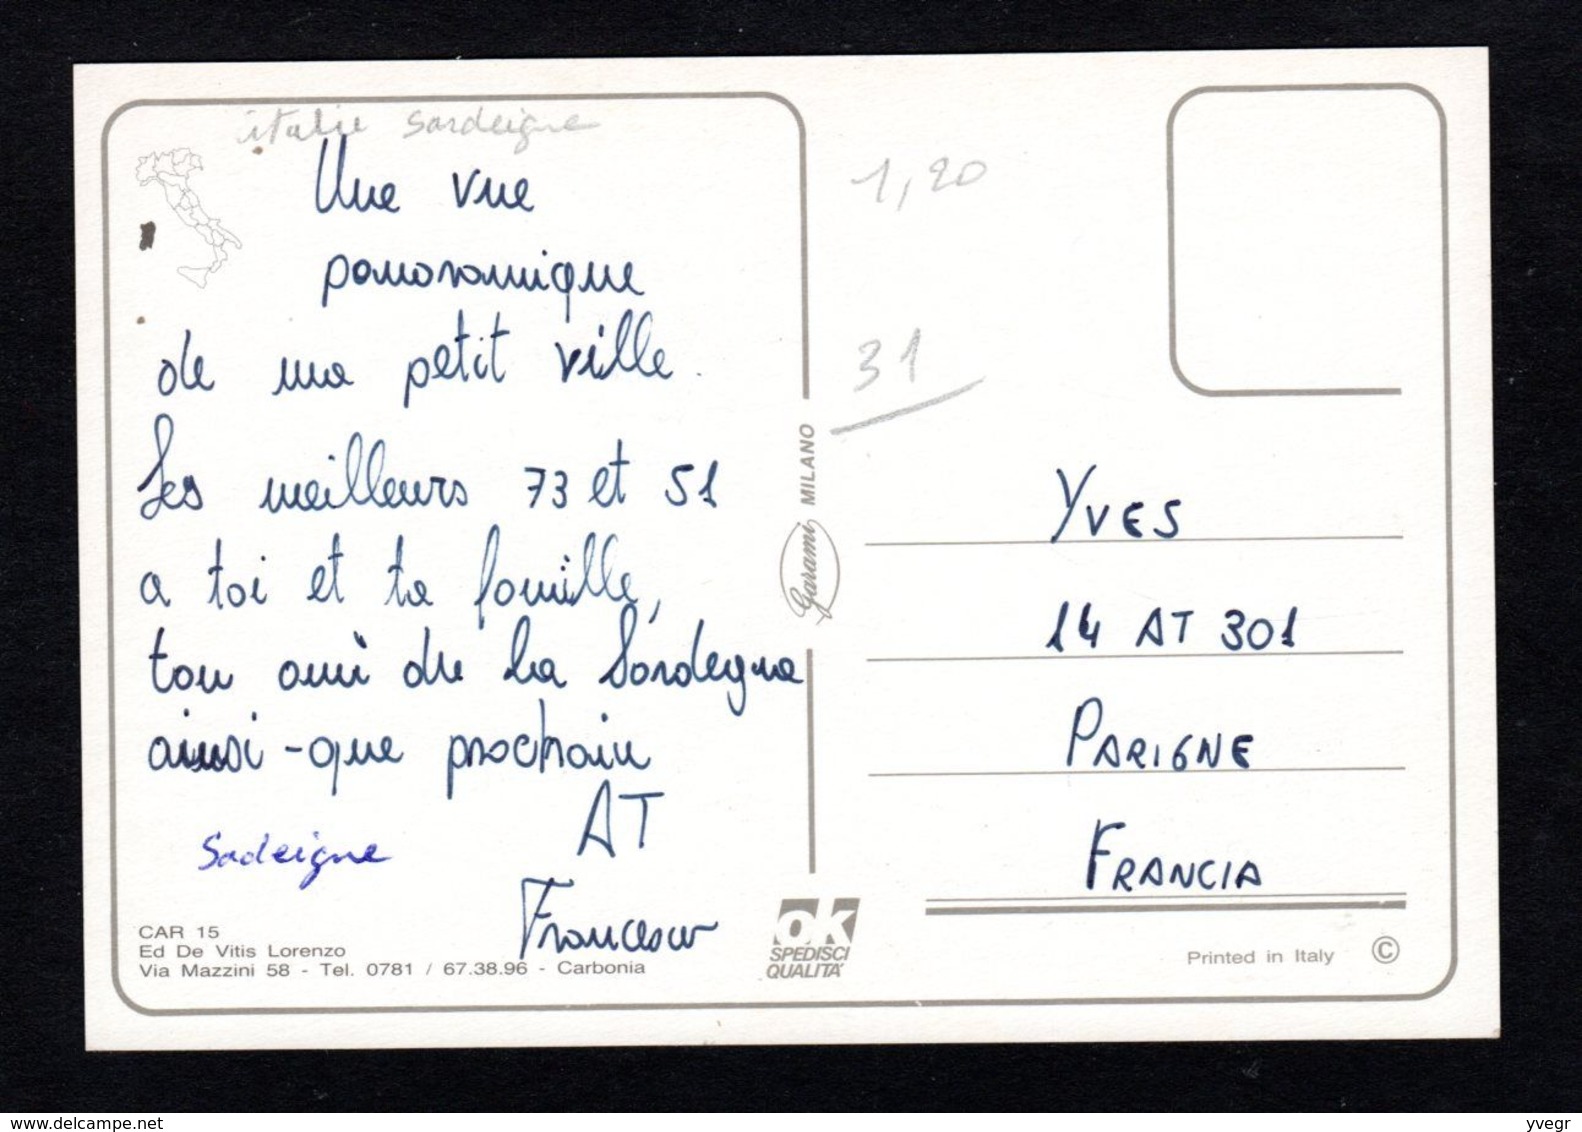 italie Sardeigne
Une vue
panoramique
de ma petit ville.
Les meilleurs 73 et 51
a toi et ta famille,
ton ami de la Sardegna
ainsi-que prochain
AT
Francesco
Sadeigne
CAR 15
Ed De Vitis Lorenzo
Via Mazzini 58 - Tel. 0781 / 67.38.96 - Carbonia
Garami MILANO
ok
SPEDISCI
QUALITA'
1,20
31
YVES
14 AT 301
PARIGNE
FRANCIA
Printed in Italy ©
www.delcampe.net
yvegr